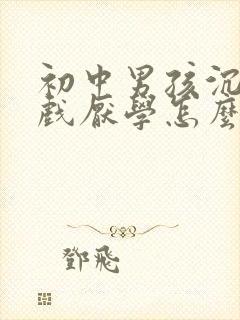 初中男孩沉
戲厭學怎麼
鄧飛